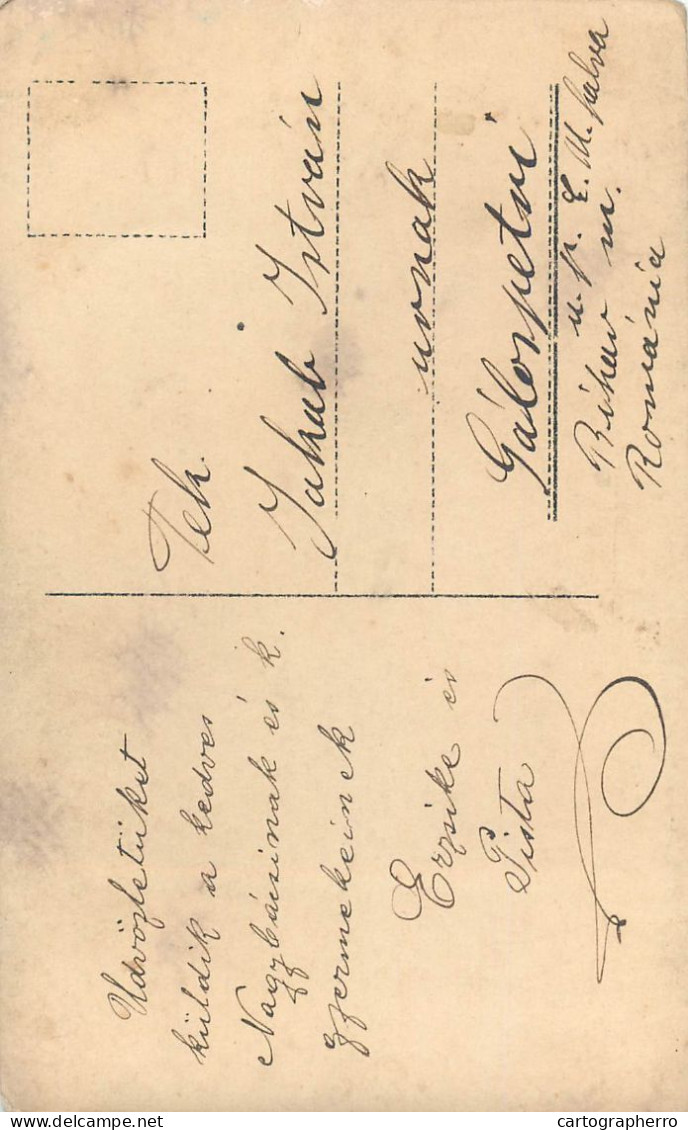 Üdvözletüket
küldik a kedves
Nagybácsinak és k.
gyermekeinek
Erzsike és
Pista
Tek.
Jakab István
urnak
Gálospetri
u. p. É. M. falva
Bihar m.
Románia
delcampe.net
cartographerro